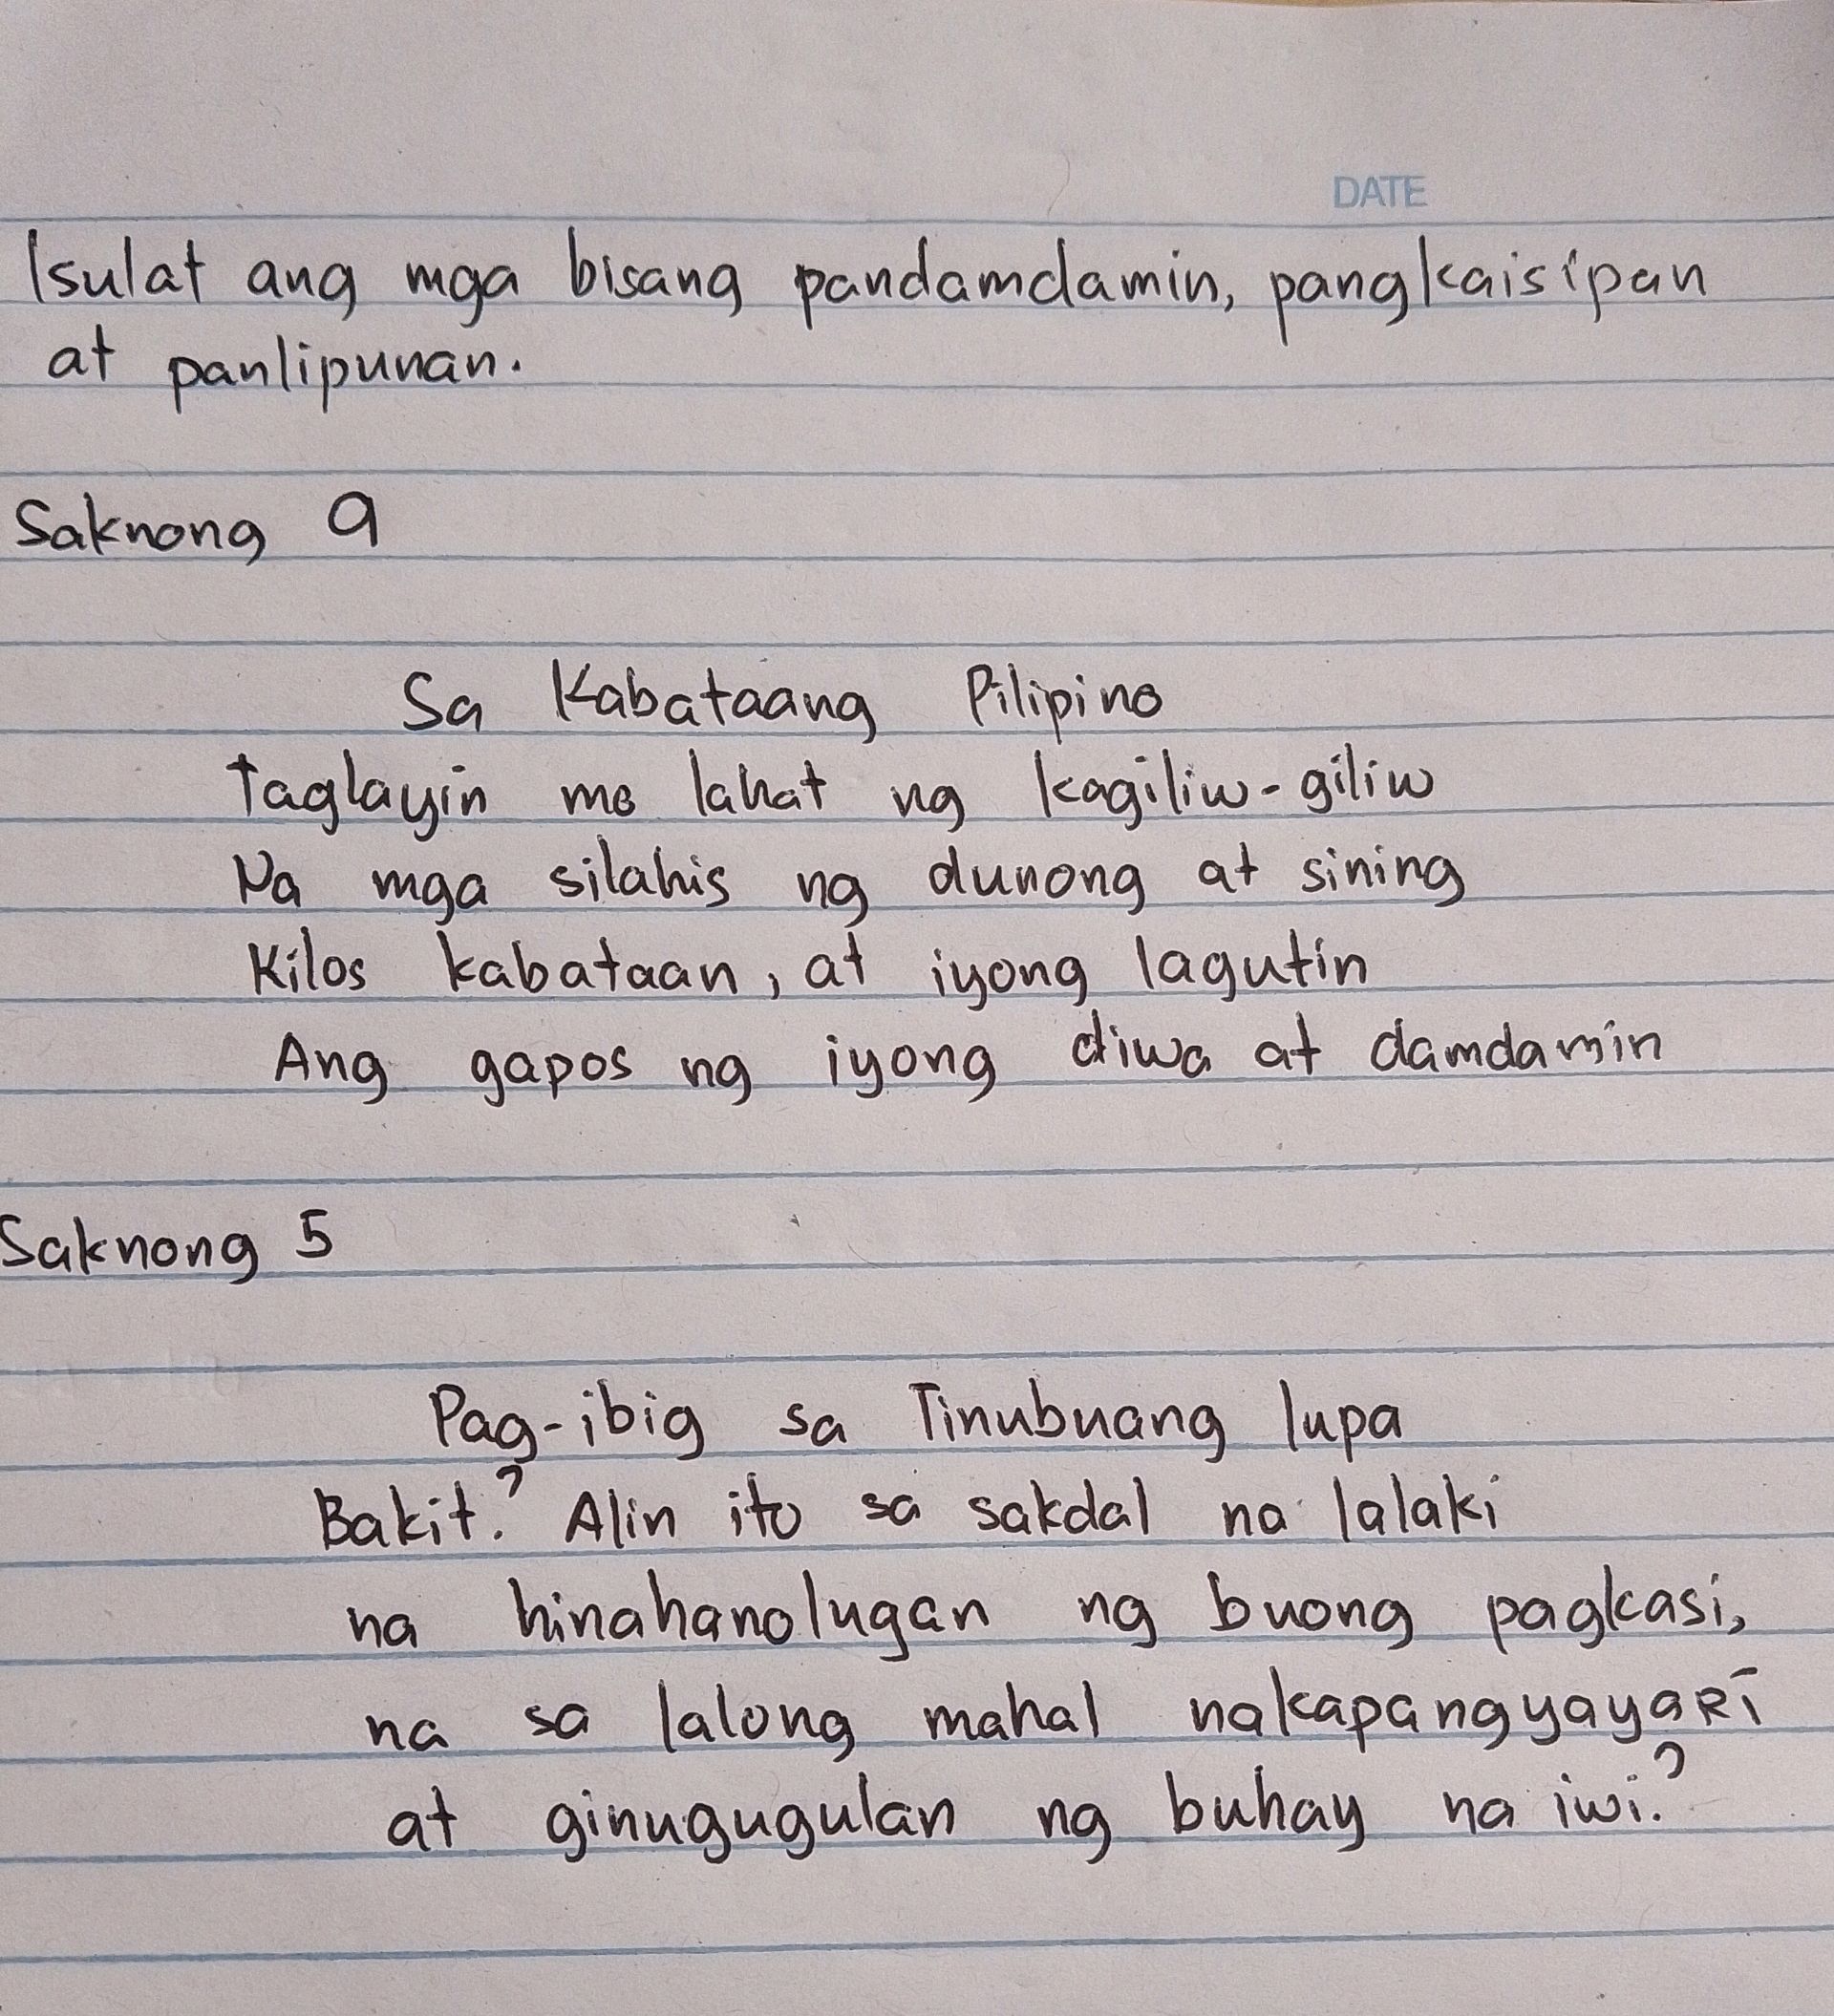 DATE
Isulat ang mga bisang pandamdamin, pangkaisipan
at panlipunan.
Saknong 9
Sa Kabataang Pilipino
Taglayin mo lahat ng kagiliw-giliw
Na mga silahis ng dunong at sining
Kilos kabataan, at iyong lagutin
Ang gapos ng iyong diwa at damdamin
Saknong 5
Pag-ibig sa Tinubuang lupa
Bakit? Alin ito sa sakdal na lalaki
na hinahanolugan ng buong pagkasi,
na sa lalong mahal nakapangyayaRi
at ginugugulan ng buhay na iwi?